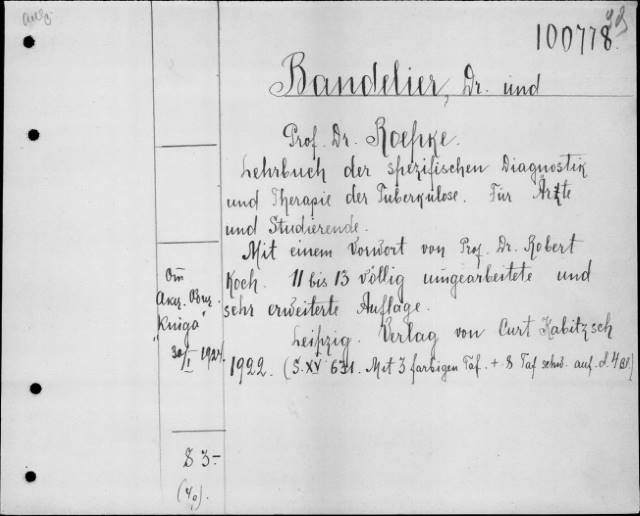 100778
Bandelier, Dr. und
Prof. Dr. Roepke.
Lehrbuch der spezifischen Diagnostik
und Therapie der Tuberkulose. Für Ärzte
und Studierende.
Mit einem Vorwort von Prof. Dr. Robert
Koch. 11 bis 13 völlig umgearbeitete und
sehr erweiterte Auflage.
Leipzig. Verlag von Curt Kabitzsch
1922. (S. XV 631. Mit 3 farbigen Taf. + 8 Taf schw. auf. d. 4 Bl)
От
Акц. Общ.
"Kniga"
30/I 1924.
$ 3-